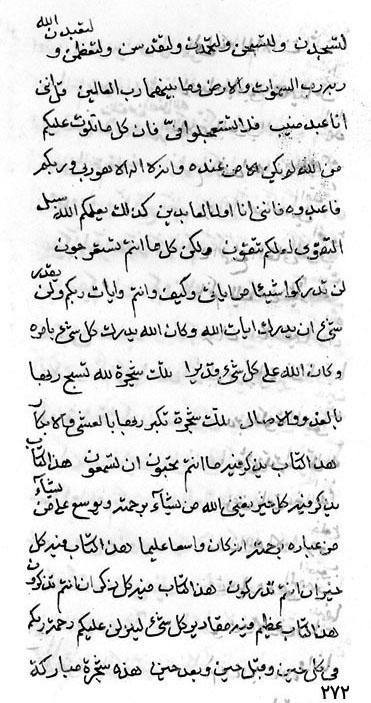 لتعبدن الله
لتسجدن ولتسبحن ولتحمدن ولتقدسن ولتعظمن و
رب السموات والارض وما بينهما رب العالمين قل انني
انا عبد منيب قل لا تستعجلوا في فان كل ما تلوت عليكم
من الله لم يكن الا من عنده وانه لا اله الا هو ربي وربكم
فاعبدوه فانني انا اول العابدين كذلك يعلمكم الله سبيل
التقوى لعلكم تتقون ولكن كل ما انتم تستعرجون
لن تدركوا شيئا من ايات وكيف وانتم وايات ربكم ولن يقدر
شيء ان يدرك ايات الله وكان الله يدرك كل شيء بامره
وكان الله على كل شيء قديرا تلك شجرة لله تسبح ربها
بالغدو والاصال تلك شجرة تكبر ربها بالعشي والابكار
هذا الكتاب يذكر فيه ما انتم تحبون ان تسمعون هذا الكتاب
يذكر فيه كل خير يغني الله من يشاء برحمته ويوسع على من يشاء
من عباده برحمته انه كان واسعا عليما هذا الكتاب فيه كل
خير ان انتم تدركون هذا الكتاب فيه كل ذكر ان انتم تذكرون
هذا الكتاب عظيم فيه مقادير كل شيء لينزلن عليكم رحمة ربكم
في كل حين وقبل حين وبعد حين هذه شجرة مباركة
٢٧٢